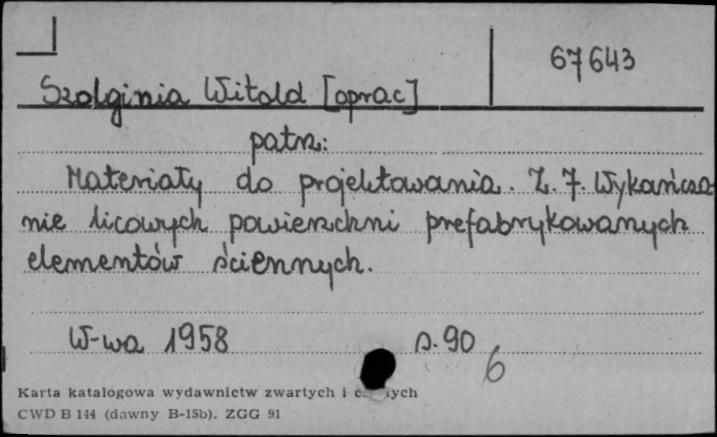 67643
Szolginia Witold [oprac]
patrz:
Materiały do projektowania. Z. 7. Wykańcza
nie licowych powierzchni prefabrykowanych
elementów ściennych.
W-wa 1958 s. 90
6
Karta katalogowa wydawnictw zwartych i
CWD B 144 (dawny B-15b). ZGG 91